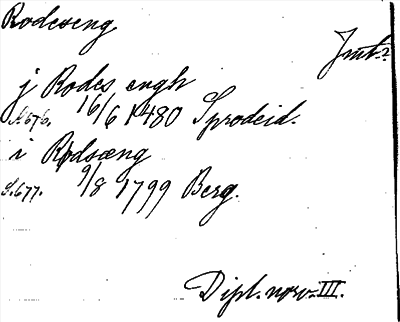 Rodeseng
Jmt.
j Rodes engh
S.676. 16/6 1480 Sprodeid.
i Rodsæng
S.677. 9/8 1799 Berg.
Dipl. norv. III.